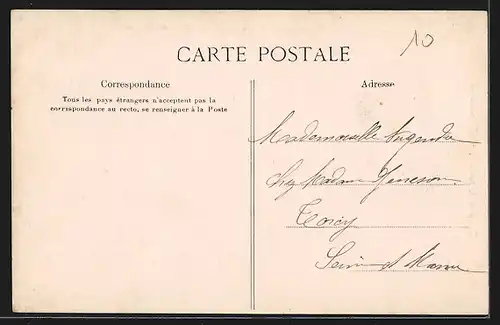 10
CARTE POSTALE
Correspondance
Tous les pays étrangers n'acceptent pas la
correspondance au recto, se renseigner à la Poste
Adresse
Mademoiselle
Chez Madame
Torcy
Seine et Marne